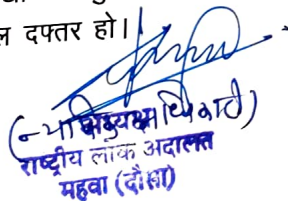 ल दफ्तर हो।
अध्यक्ष
राष्ट्रीय लोक अदालत
महवा (दौसा)